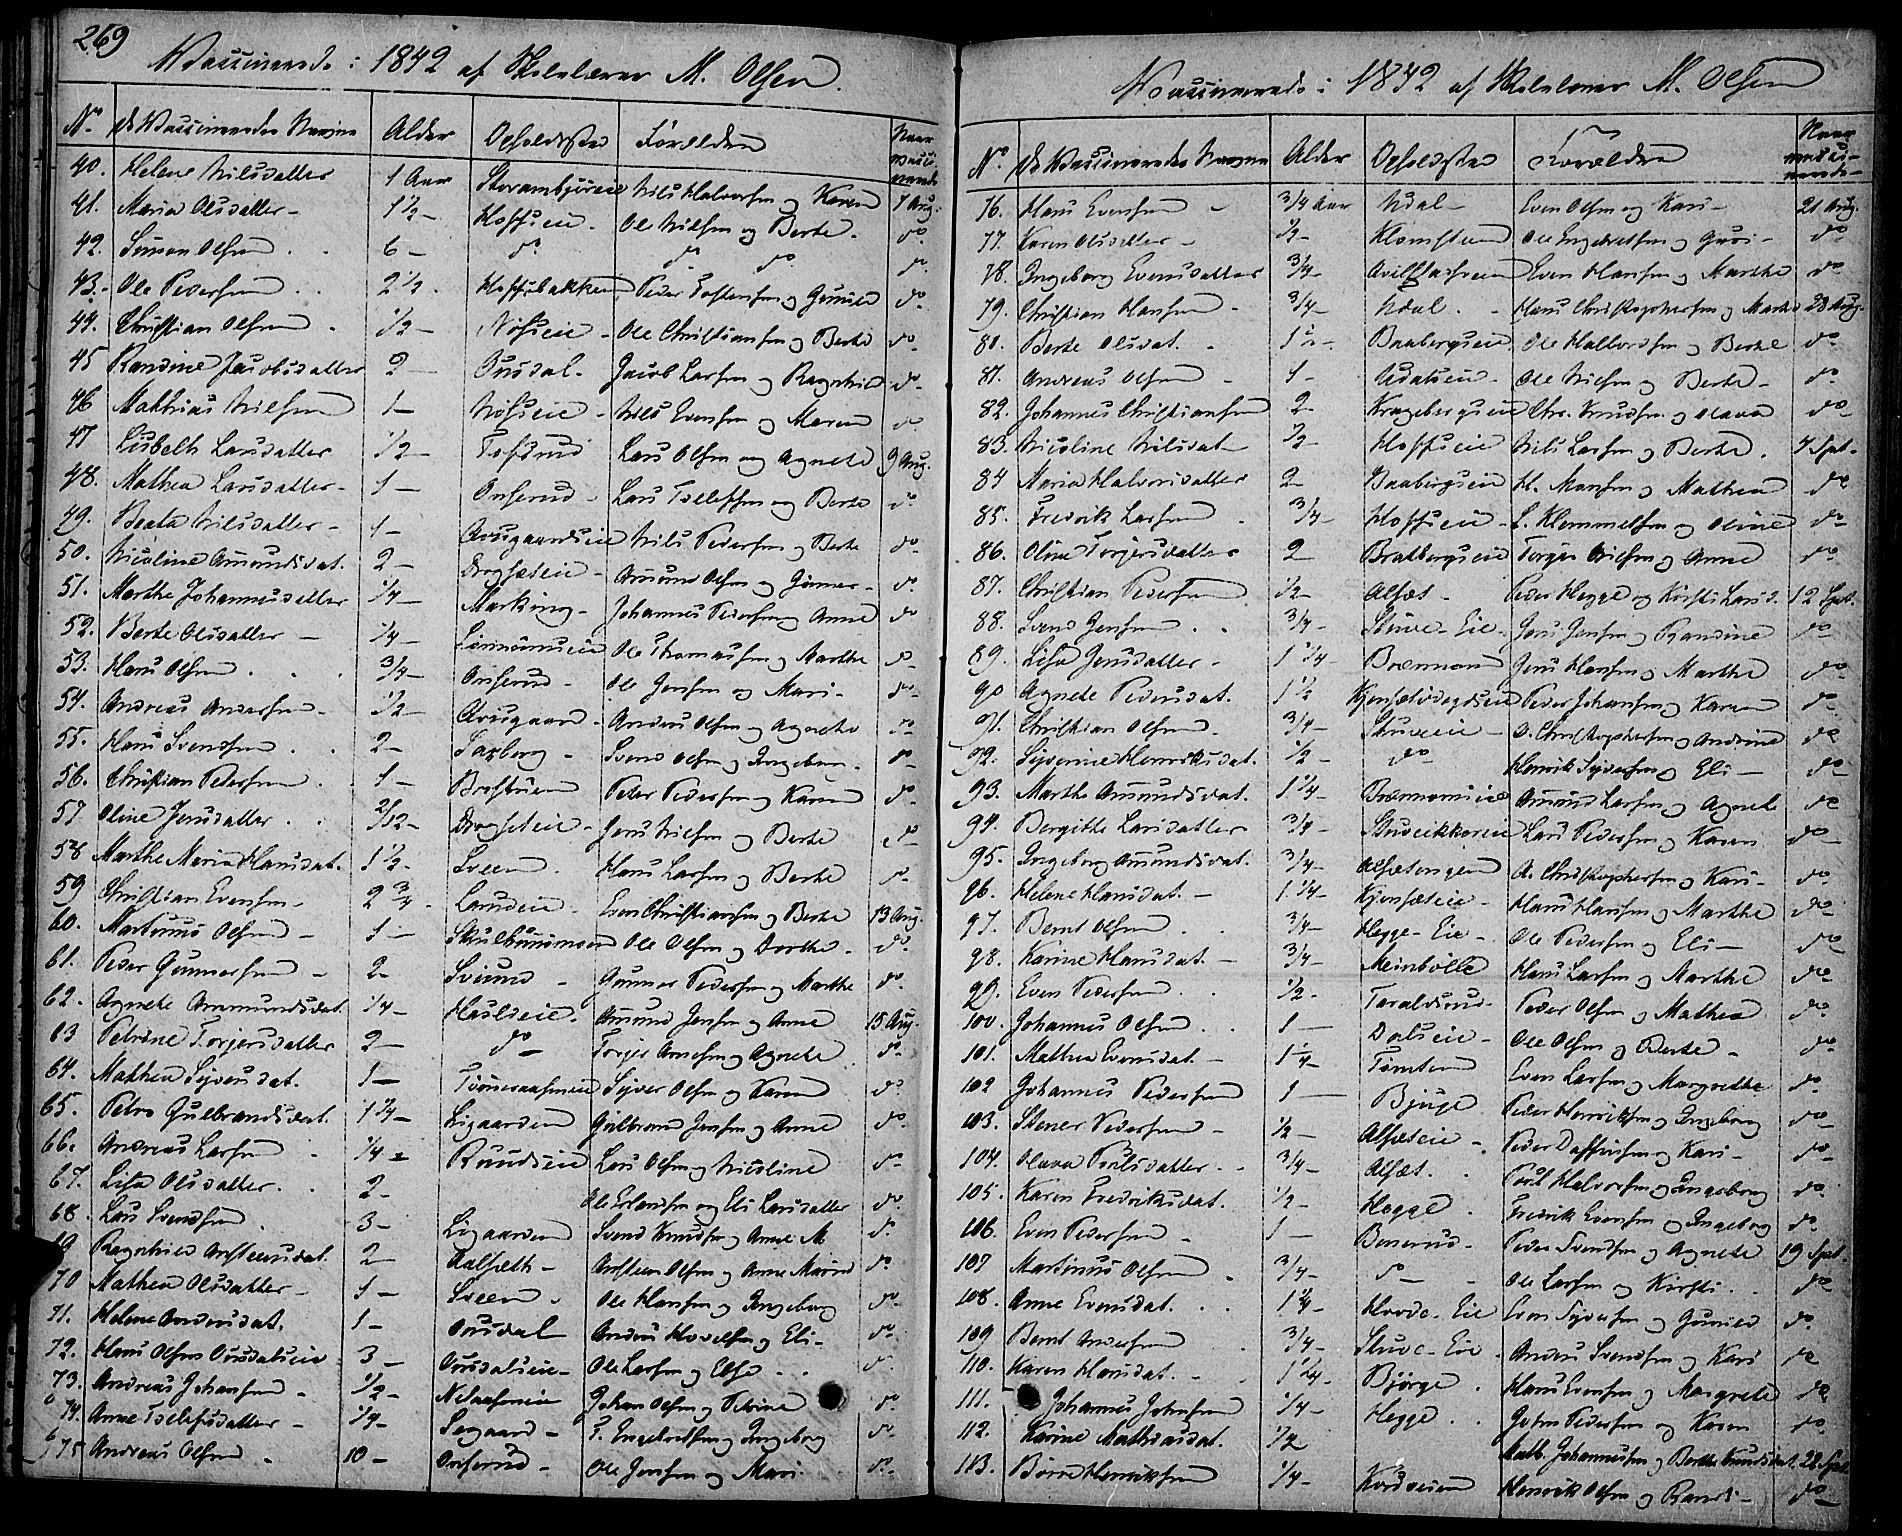 269
Vaccinerede i 1842 af Skolelærer M. Olsen.
No. de Vaccineredes Navne Alder Opholdssted Forældre Naar vaccinerede
40. Helene Nilsdatter 1 Aar Nils Halvorsen og Karen 7 Aug.
41. Maria Olsdatter - 1 1/2 - Hoffseie - Ole Nilsen og Berte - do
42. Simen Olsen 6 - do do do do
43. Ole Pedersen 2 1/2 Hoffsbakken Peder Tostensen og Gunild do
44. Christian Olsen 1/2 - Nøsseie - Ole Christiansen og Berte do
45 Randine Jacobsdatter 2 - Ousdal - Jacob Larsen og Ragnhild do
46 Mathias Nilsen 1 - Nøsseie - Nils Evensen og Maren do
47 Lisbeth Larsdatter 1/2 - Tofsrud Lars Olsen og Agnete 9 Aug.
48. Mathea Larsdatter - 1 - Onserud - Lars Tollefsen og Berte do
49. Beata Nilsdatter - 1 - Nils Pedersen og Berte do
50. Nicoline Amundsdat. 2 - Amund Olsen og Gunner - do
51. Marthe Johannesdatter 1/4 - Marking - Johannes Pedersen og Anne do
52. Berte Olsdatter - 1/4 - Ole Thomassen og Marthe do
53. Hans Olsen 3/4 - Onserud - Ole Jensen og Mari - do
54. Andreas Andersen - 1/2 - Anders Olsen og Agnete do
55. Hans Svendsen 2 - Saxberg - Svend Olsen og Ingeborg - do
56. Christian Pedersen 1 - Brostuen Peder Pedersen og Karen do
57 Oline Jensdatter 2/12 - Jens Nilsen og Berte do
58 Marthe Maria Hansdat. 1 1/2 - Sveen Hans Larsen og Berte do
59 Christian Evensen - 2 3/4 - Landseie - Even Christiansen og Berte 13 Aug.
60. Martinus Olsen - 1 - Ole Olsen og Dorthe - do
61. Peder Gunnersen - 2 - Sviund - Gunner Pedersen og Marthe do
62. Agnete Ammundsdat. 1/4 - Haslieie - Amund Jensen og Anne 15 Aug.
63 Petrine Torjersdatter 2 - do - Torger Arnesen og Agnete do
64. Mathea Syversdat. 1 - Syver Olsen og Karen do
65. Petra Gulbrandsdat. 1 1/4 - Ligaarden Gulbrand Jensen og Anne do
66. Andreas Larsen 1/4 - Ruudseie Lars Olsen og Nicoline do
67. Lisa Olsdatter 2 - Ole Erlandsen og Eli Larsdatter do
68. Lars Svendsen 3 - Ligaarden Svend Knudsen og Anne M do
69 Ragnhild Anstensdat. 2 - Aalseth - Ansteen Olsen og Anne Marie do
70 Mathea Olsdatter - 1 - Sveen - Ole Hansen og Ingeborg do
71. Helene Andersdat. 1 - Ousdal Anders Hovelsen og Eli - do
72. Hans Olsen Ousdalseie 3 - Ousdalseie - Ole Larsen og Else do
73. Andreas Johansen - 1/2 - Johan Olsen og Petrine do
74. Anne Tollefsdatter - 1/4 - Segaard - T. Engebretsen og Ingeborg do
75 Andreas Olsen - 10 - Onserud - Ole Jensen og Mari do
Vaccinerede i 1842 af Skolelærer M. Olsen
No. de Vaccineredes Navne Alder Opholdssted Forældre Naar vaccinerede
76. Hans Evensen - 3/4 Aar Udal - Even Olsen og Kari - 21 Aug.
77. Karen Olsdatter - 1/2 - Klomsteen Ole Engebretsen og Guri - do
78. Ingeborg Evensdatter 3/4 - Even Hansen og Marthe do
79. Christian Hansen - 3/4 - Udal - Hans Christophersen og Marthe 23 Aug.
80. Berte Olsdat. - 1 1/2 - Baabergseie Ole Halvorsen og Berte do
81. Andreas Olsen - 1 - Udalseie - Ole Nilsen og Berte - do
82. Johannes Christiansen 2 - Kragebergseie Chr. Knudsen og Olava do
83. Nicoline Nilsdat - 1/2 - Hoffseie Nils Larsen og Berte. 7 Spt.
84 Maria Halvorsdatter 2 - Baabergseie H. Hansen og Mathea do
85. Fredrik Larsen 3/4 - Hoffseie - L. Klemmetsen og Oline do
86. Oline Torjersdatter 2 - Braabergseie Torger Nilsen og Anne do
87. Christian Pedersen 1/2 - Alsæt - Peder Hegge og Kirsti Larsd. 12 Spt.
88. Svend Jensen 3/4 - Stuve-Eie - Jens Jensen og Randine do
89. Lisa Jensdatter - 1 1/4 - Brænnom Jens Hansen og Marthe do
90 Agnete Pedersdat. 1 1/2 Peder Johansen og Karen do
91. Christian Olsen 3/4 - Stuveeie - O. Christophersen og Andrine do
92. Syverine Henriksdat. 1/2 - do Henrik Syversen og Eli - do
93. Marthe Amundsdat. 1 1/4 Brænnomseie Amund Larsen og Agnete do
94. Bergitte Larsdatter 3/4 - Lars Pedersen og Karen do
95. Ingeborg Amundsdat. 3/4 - Alsætengen A. Christophersen og Kari - do
96. Helene Hansdat. - 1 1/4 - Kjensæteie - Hans Hansen og Marthe do
97. Bernt Olsen 3/4 - Hegge-Eie - Ole Pedersen og Eli - do
98. Karine Hansdat - 3/4 - Meinbölle Hans Larsen og Marthe do
99. Even Pedersen 1/2 - Taraldsrud - Peder Olsen og Mathea do
100. Johannes Olsen 1 - Dalseie - Ole Olsen og Berte - do
101. Mathea Evensdat - 1 1/4 Tomten Even Larsen og Margrethe do
102 Johannes Pedersen 1 - Bjuge Peder Henriksen og Ingeborg do
103. Stener Pedersen - 1/2 - Alsæteie - Peder Daffinsen og Kari - do
104. Olava Poulsdatter - 3/4 - Alsæt. Poul Halvorsen og Ingeborg do
105. Karen Fredriksdat. 1/2 - Hegge Fredrik Evensen og Ingeborg do
106. Even Pedersen - 1 - Benerud - Peder Svendsen og Agnete 19 Spt.
107 Martinus Olsen 3/4 - do - Ole Larsen og Kirsti do
108. Anne Evensdat. 1 1/4 - Even Syversen og Gunild do
109 Bernt Andersen 3/4 - Stuve-Eie Anders Svendsen og Kari do
110. Karen Hansdat. 1 1/4 - Bjørge Hans Evensen og Margrete do
111. Johannes Johnsen 1/4 - Hegge John Pedersen og Karen do
112. Karine Mathiasdat. 1/2 Math. Johannessen og Berthe Knudsdat. 22 Spt.
113. Børre Henriksen 1/4 - Henrik Olsen og Randi - do